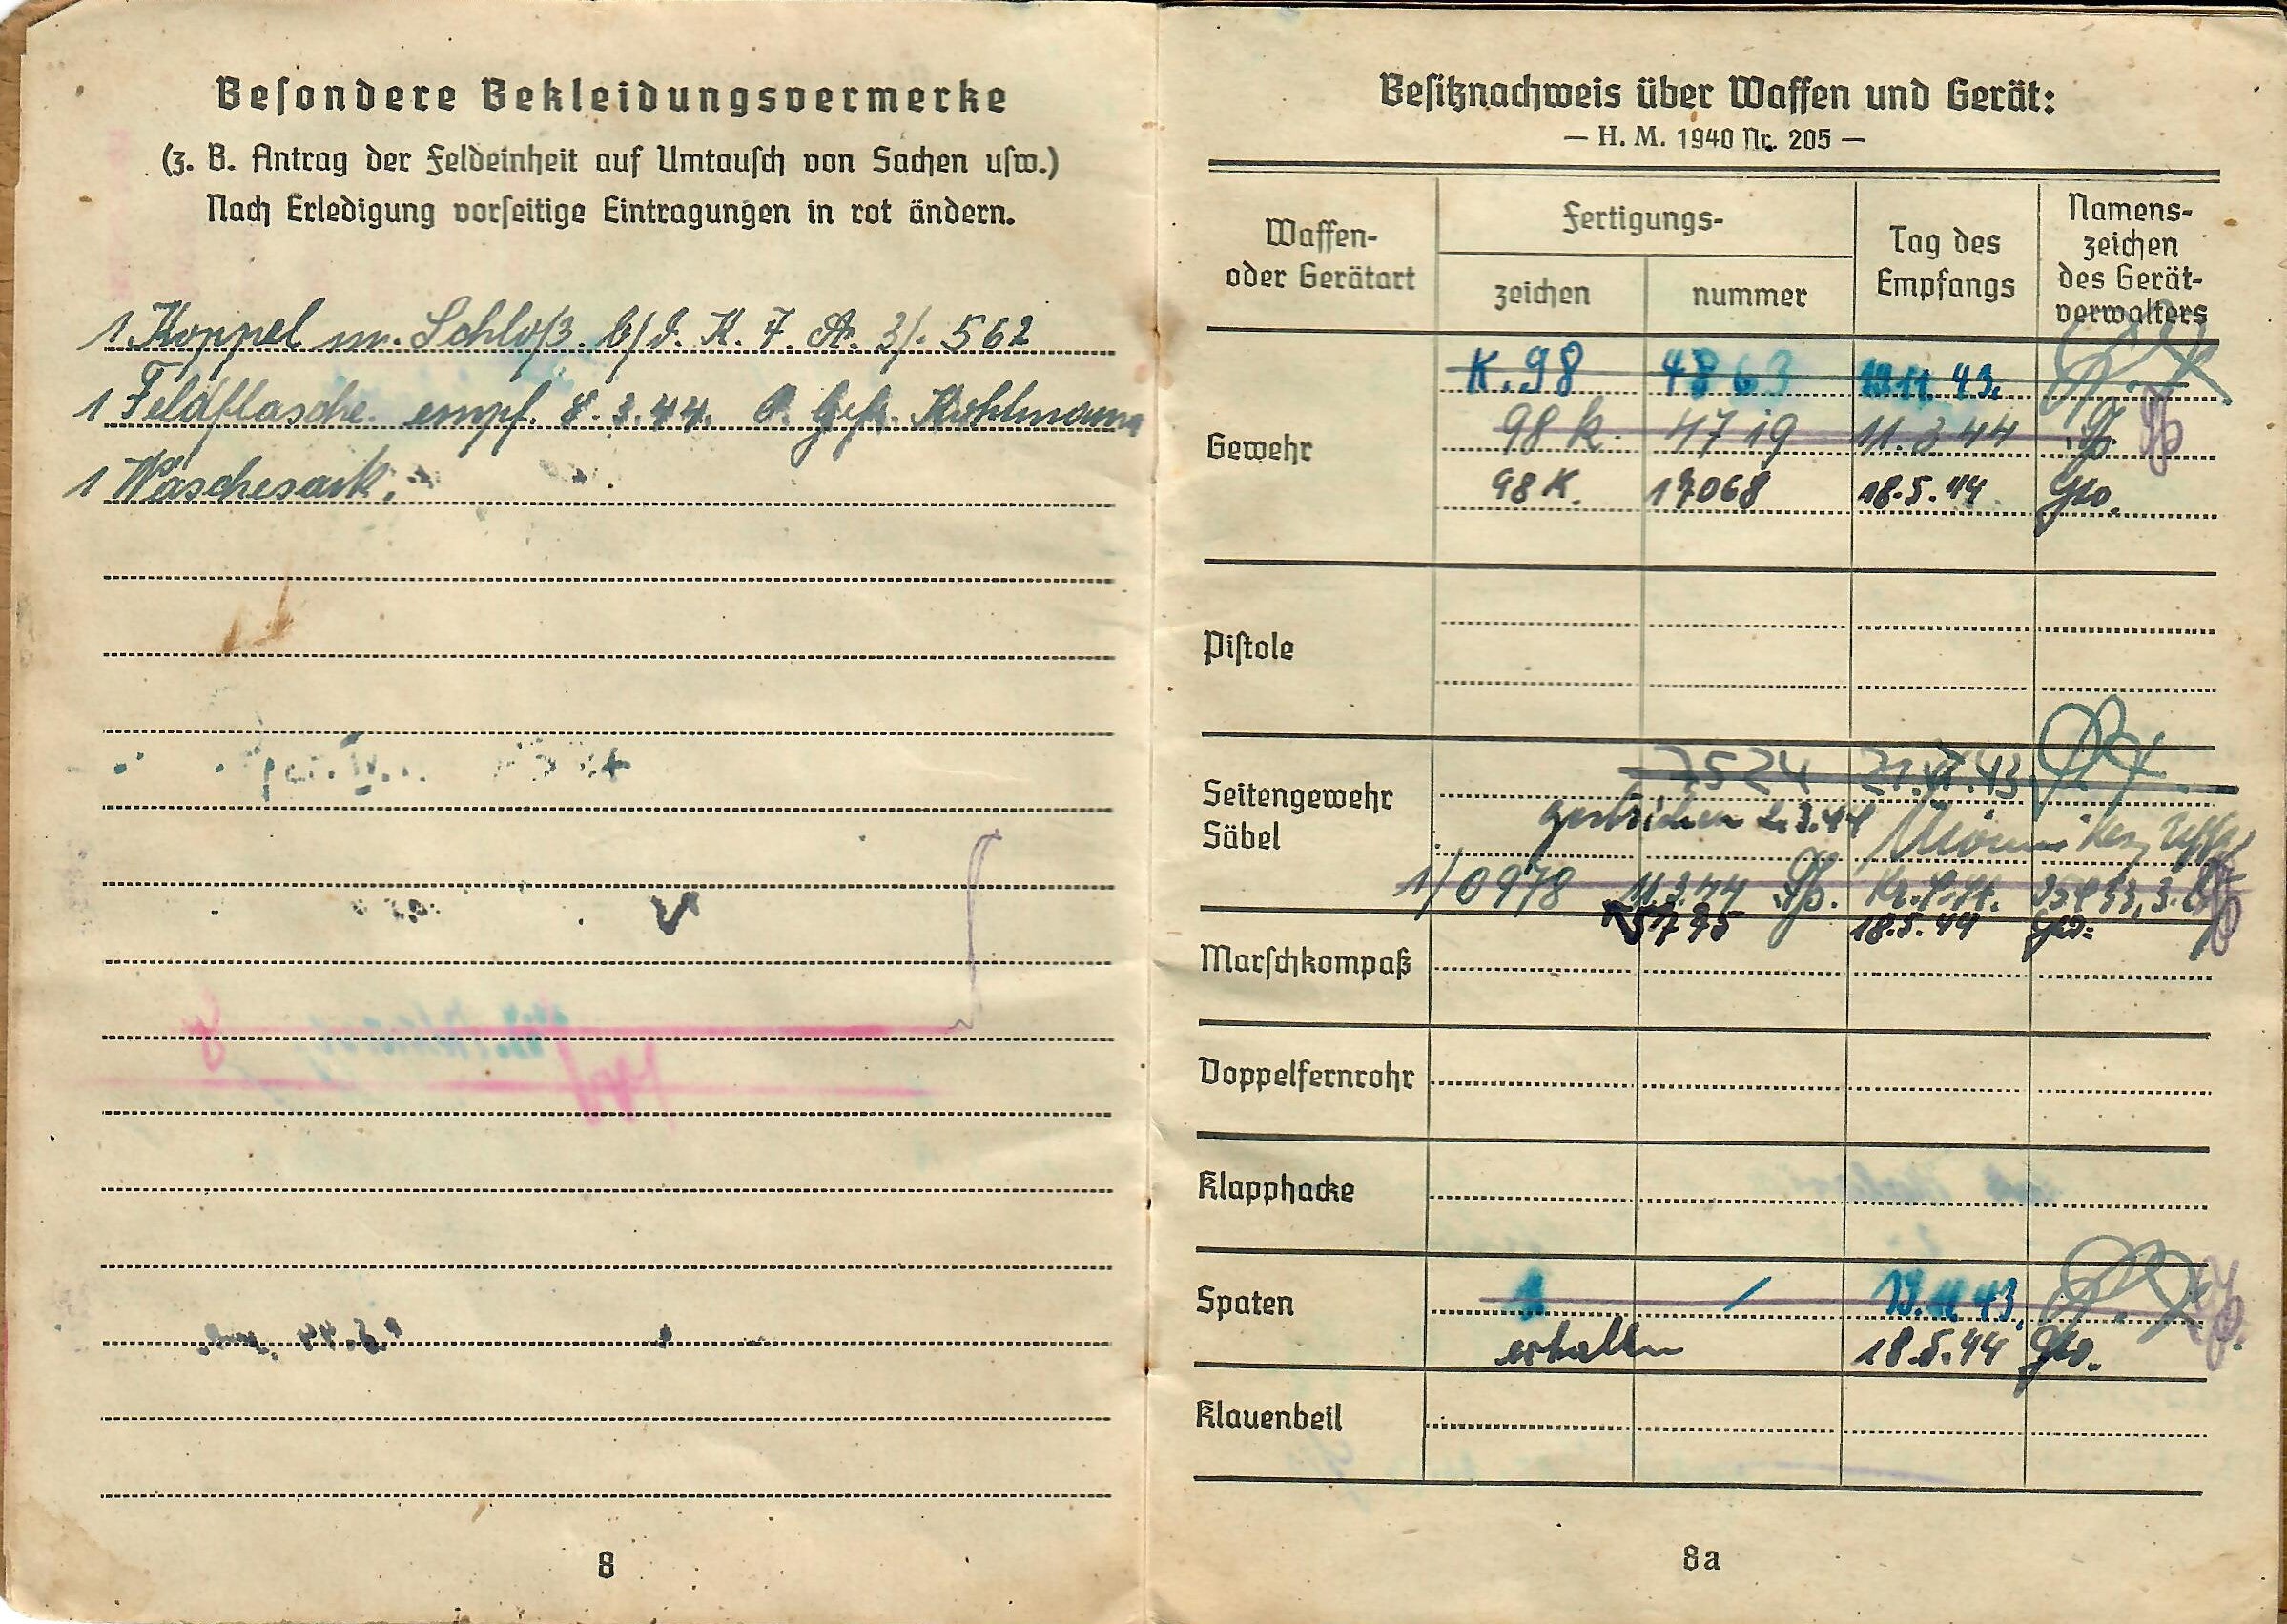 Besondere Bekleidungsvermerke
(z. B. Antrag der Feldeinheit auf Umtausch von Sachen usw.)
Nach Erledigung vorseitige Eintragungen in rot ändern.
1 Koppel m. Schloß b/d. K. 7. A. 3/. 562
1 Feldflasche empf. 8.3.44. O. Gefr. Kohlmann
1 Wäschesack.
8
Besitznachweis über Waffen und Gerät:
— H. M. 1940 Nr. 205 —
Waffen- oder Gerätart
Fertigungs-
zeichen
nummer
Tag des Empfangs
Namens-
zeichen
des Gerät-
verwalters
K. 98 4863 19.11.43.
Gewehr
98 k. 4719 11.3.44
98 K. 17068 18.5.44 Gro.
Pistole
Seitengewehr
Säbel
7524 21.11.43
gestrichen 2.3.44
1/0978 11.3.44
5775 18.5.44 Gro.
Marschkompaß
Doppelfernrohr
Klapphacke
Spaten
1 / 19.11.43.
erhalten 18.5.44 Gro.
Klauenbeil
8a